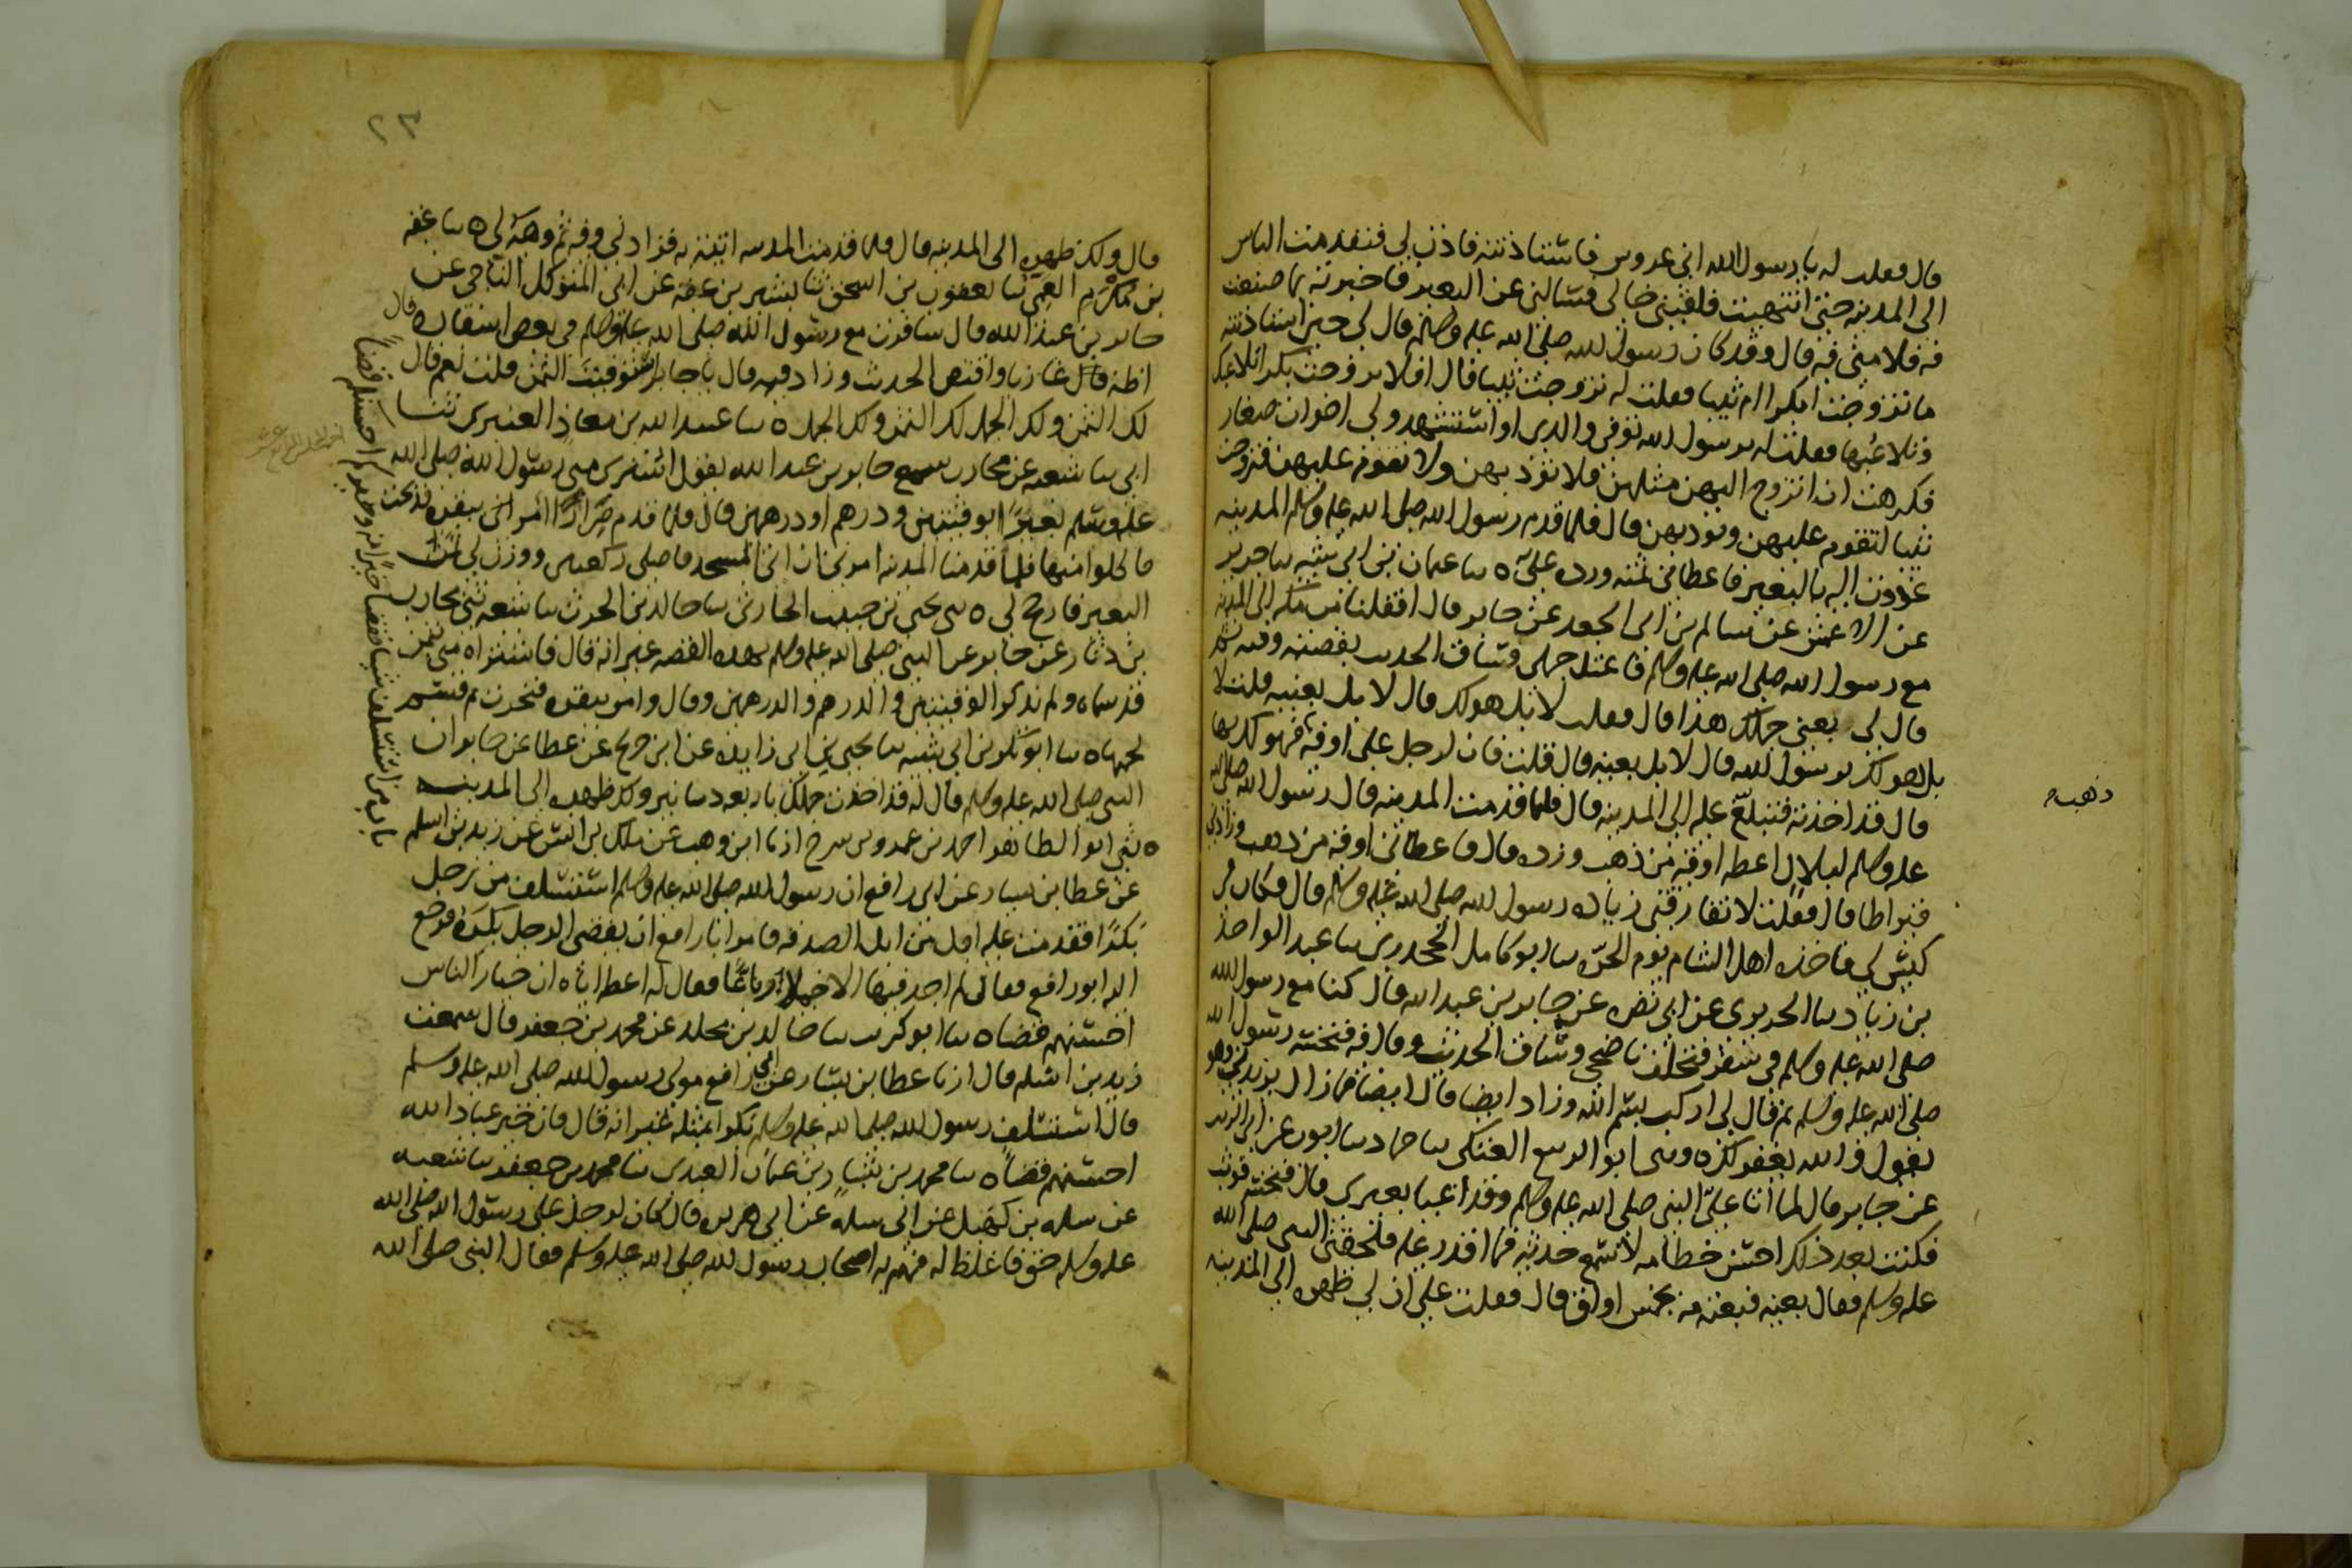 قال فقلت له يا رسول الله انى عروس فاستاذنته فاذن لى فتقدمت الناس
الى المدينه حتى انتهيت فلقينى خالى فسالنى عن البعير فاخبرته بما صنعت
فيه فلامنى فيه قال وقد كان رسول الله صلى الله عليه وسلم قال لى حين استاذنته
ما تزوجت ابكرا ام ثيبا فقلت له تزوجت ثيبا قال افلا تزوجت بكرا تلاعبك
وتلاعبها فقلت له يرسول الله توفى والدى او استشهد ولى اخوات صغار
فكرهت ان اتزوج اليهن مثلهن فلا تودبهن ولا تقوم عليهن فتزوجت
ثيبا لتقوم عليهن وتودبهن قال فلما قدم رسول الله صلى الله عليه وسلم المدينه
غدوت اليه بالبعير فاعطانى ثمنه ورده على ه سا عثمان بن ابى شيبه سا جرير
عن الاعمش عن سالم بن ابى الجعد عن جابر قال اقبلنا من مكه الى المدينه
مع رسول الله صلى الله عليه وسلم فاعتل جملى وساق الحديث بقصته وفيه ثم
قال لى بعنى جملك هذا قال فقلت لا بل هو لك قال لا بل بعنيه قلت لا
بل هو لك يرسول الله قال لا بل بعنيه قال قلت فان لرجل على اوقيه فهو لك بها
قال قد اخذته فتبلغ عليه الى المدينه قال فلما قدمت المدينه قال رسول الله صلى الله
عليه وسلم لبلال اعطه اوقيه من ذهب وزده قال فاعطانى اوقيه من ذهب وزادنى
قيراطا قال فقلت لا تفارقنى زياده رسول الله صلى الله عليه وسلم قال فكان فى
كيس لى فاخذه اهل الشام يوم الحره سا ابو كامل الجحدرى سا عبد الواحد
بن زياد سا الجريرى عن ابى نضره عن جابر بن عبد الله قال كنا مع رسول الله
صلى الله عليه وسلم فى سفر فتخلف ناضحى وساق الحديث وقال فيه فنخسه رسول الله
صلى الله عليه وسلم ثم قال لى اركب بسم الله وزاد ايضا قال ايضا فما زال يزيدنى وهو
يقول والله يغفر لك ه وسى ابو الربيع العتكى سا حماد سا ايوب عن ابى الزبير
عن جابر قال لما اتا على النبى صلى الله عليه وسلم وقد اعيا بعيرى قال فنخسه فوثب
فكنت بعد ذلك احبس خطامه لاسمع حديثه فما اقدر عليه فلحقنى النبى صلى الله
عليه وسلم فقال بعنيه فبعته منه بخمس اواق قال فقلت على ان لى ظهره الى المدينه
ذهب
٢٣
قال ولك ظهره الى المدينه قال فلما قدمت المدينه اتيته به فزادنى وقيه ثم وهبه لى ه سا عقبه
بن مكرم العمى سا يعقوب بن اسحق سا بشير بن عقبه عن ابى المتوكل الناجى عن
جابر بن عبد الله قال سافرت مع رسول الله صلى الله عليه وسلم فى بعض اسفاره قال
اظنه قال غازيا واقتص الحديث وزاد فيه قال يا جابر استوفيت الثمن قلت نعم قال
لك الثمن ولك الجمل لك الثمن ولك الجمل ه سا عبيد الله بن معاذ العنبرى سا
ابى سا شعبه عن محارب سمع جابر بن عبد الله يقول اشترى منى رسول الله صلى الله
عليه وسلم بعيرا بوقيتين ودرهم او درهمين قال فلما قدم صرارا امر ببقره فذبحت
فاكلوا منها فلما قدمنا المدينه امرنى ان اتى المسجد فاصلى ركعتين ووزن لى ثمن
البعير فارجح لى ه سى يحيى بن حبيب الحارثى سا خالد بن الحرث سا شعبه سى محارب
بن دثار عن جابر عن النبى صلى الله عليه وسلم بهذه القصه غير انه قال فاشتراه منى بثمن
قد سماه ولم يذكر الوقيتين والدرهم والدرهمين وقال وامر ببقره فنحرت ثم قسم
لحمها ه سا ابو بكر بن ابى شيبه سا يحيى بن ابى زايده عن ابن جريج عن عطا عن جابر ان
النبى صلى الله عليه وسلم قال له قد اخذت جملك باربعه دنانير ولك ظهره الى المدينه
ه سى ابو الطاهر احمد بن عمرو بن سرح انا ابن وهب عن ملك بن انس عن زيد بن اسلم
عن عطا بن يسار عن ابى رافع ان رسول الله صلى الله عليه وسلم استسلف من رجل
بكرا فقدمت عليه ابل من ابل الصدقه فامر ابا رافع ان يقضى الرجل بكره فرجع
اليه ابو رافع فقال لم اجد فيها الا خيارا رباعيا فقال له اعطه اياه ان خيار الناس
احسنهم قضا ه سا ابو كريب سا خالد بن مخلد عن محمد بن جعفر قال سمعت
زيد بن اسلم قال انا عطا بن يسار عن ابى رافع مولى رسول الله صلى الله عليه وسلم
قال استسلف رسول الله صلى الله عليه وسلم بكرا بمثله غير انه قال فان خير عباد الله
احسنهم قضا ه سا محمد بن بشار بن عثمان العبدى سا محمد بن جعفر سا شعبه
عن سلمه بن كهيل عن ابى سلمه عن ابى هريره قال كان لرجل على رسول الله صلى الله
عليه وسلم حق فاغلظ له فهم به اصحاب رسول الله صلى الله عليه وسلم فقال النبى صلى الله
باب من استسلف شيا فقضا خيرا منه وخيركم احسنكم قضا